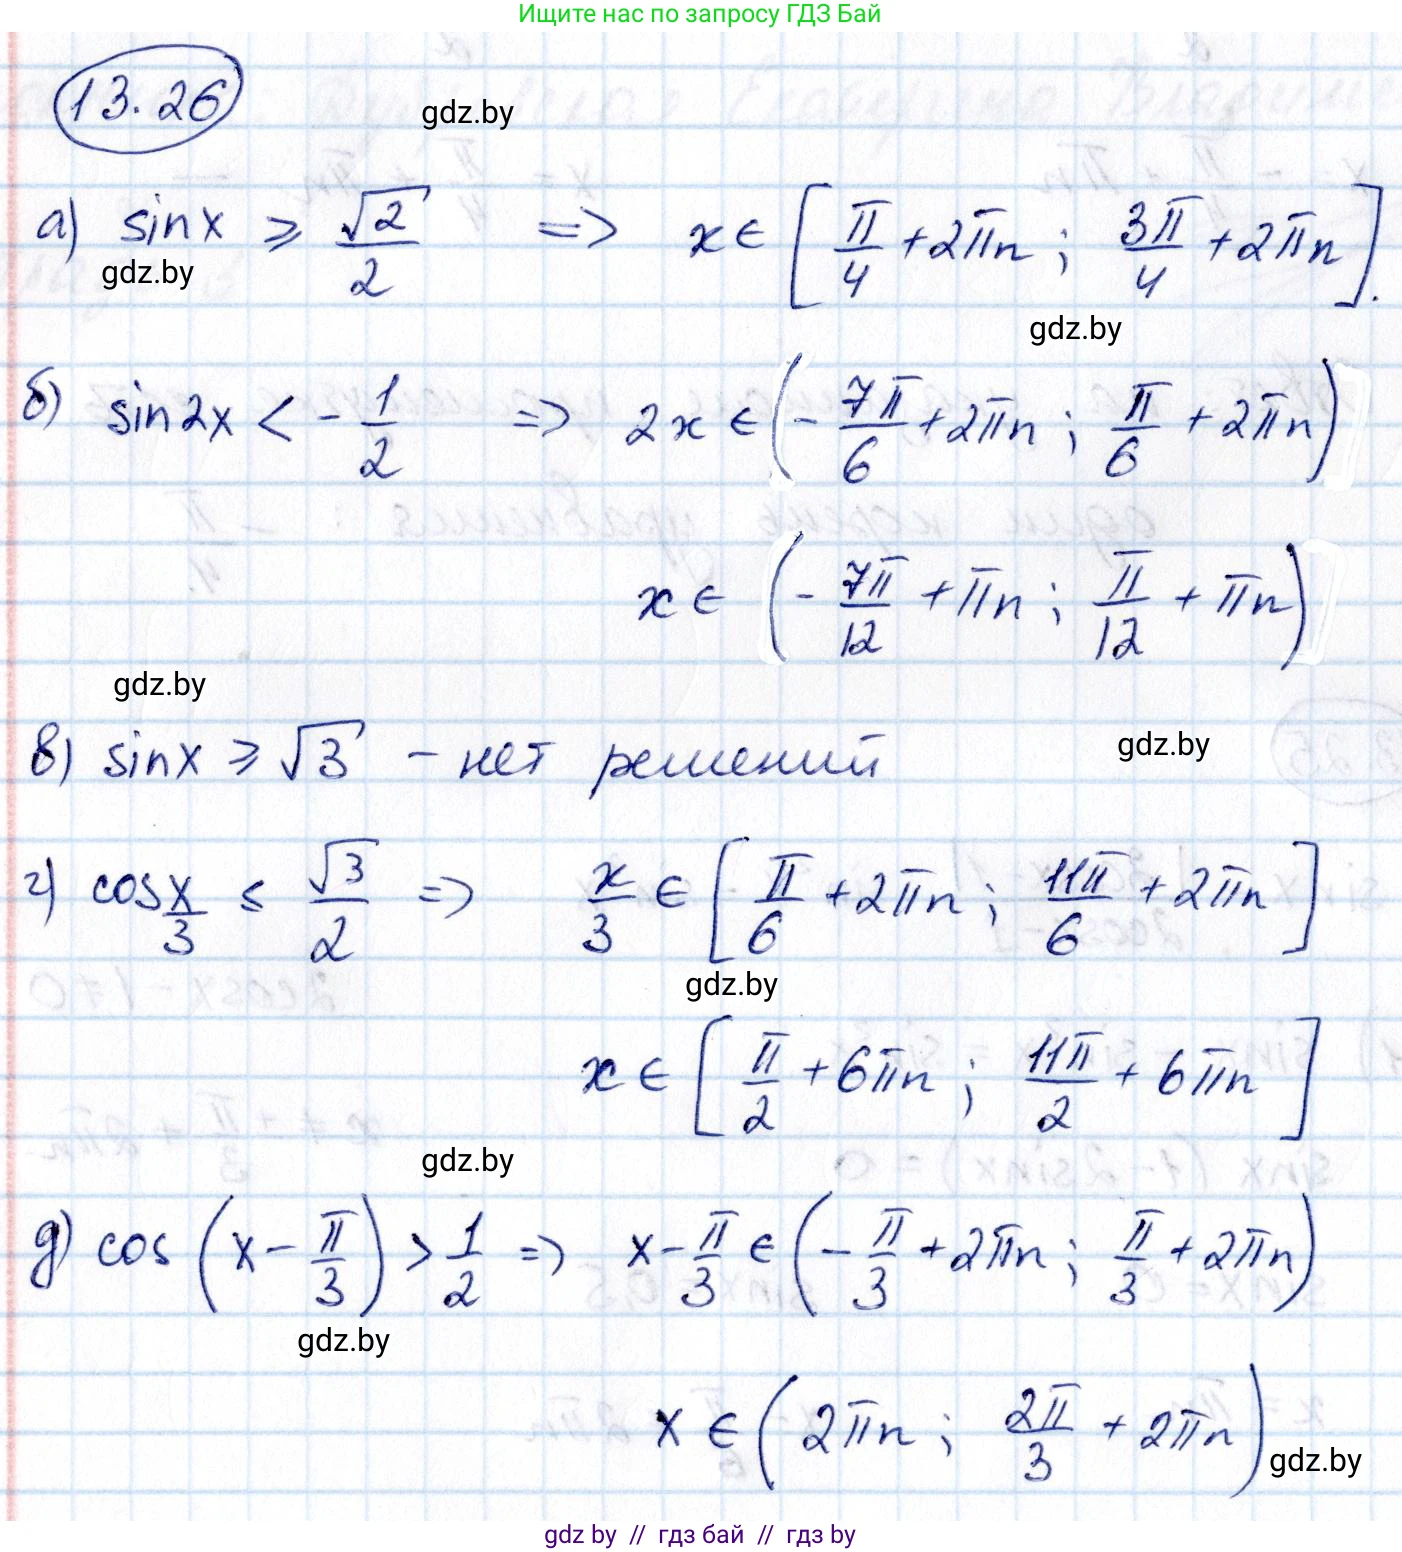 Ищите нас по запросу ГДЗ Бай
13.26
gdz.by
а) sinx ⩾ √2/2 => x ∈ [π/4 + 2πn ; 3π/4 + 2πn].
gdz.by
gdz.by
б) sin2x < - 1/2 => 2x ∈ (- 7π/6 + 2πn ; π/6 + 2πn)
x ∈ (- 7π/12 + πn ; π/12 + πn)
gdz.by
в) sinx ⩾ √3 - нет решений
gdz.by
г) cos x/3 ≤ √3/2 => x/3 ∈ [π/6 + 2πn ; 11π/6 + 2πn]
gdz.by
x ∈ [π/2 + 6πn ; 11π/2 + 6πn]
gdz.by
д) cos (x - π/3) > 1/2 => x - π/3 ∈ (- π/3 + 2πn ; π/3 + 2πn)
gdz.by
x ∈ (2πn ; 2π/3 + 2πn)
gdz.by
gdz by // гдз бай // гдз by